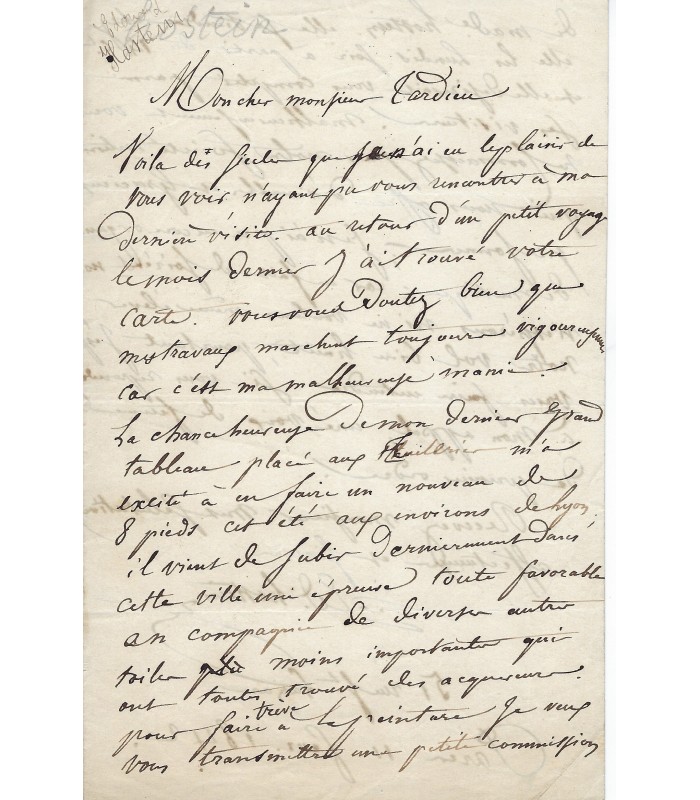 Edouard
Hostein
Mon cher monsieur Tardieu
Voila des siecles que je n'ai eu le plaisir de
vous voir n'ayant pu vous rencontrer à ma
dernière visite. au retour d'un petit voyage
le mois dernier j'ai trouvé votre
carte. vous vous doutez bien que
mes travaux marchent toujours vigoureusement
car c'est ma malheureuse manie.
La chance heureuse de mon dernier grand
tableau placé aux Tuileries m'a
excité à en faire un nouveau de
8 pieds cet été aux environs de Lyon.
il vient de subir dernierement dans
cette ville une épreuve toute favorable
en compagnie de diverses autres
toiles moins importantes qui
ont toutes trouvé des acquereurs.
pour faire trève à la peinture je veux
vous transmettre une petite commission